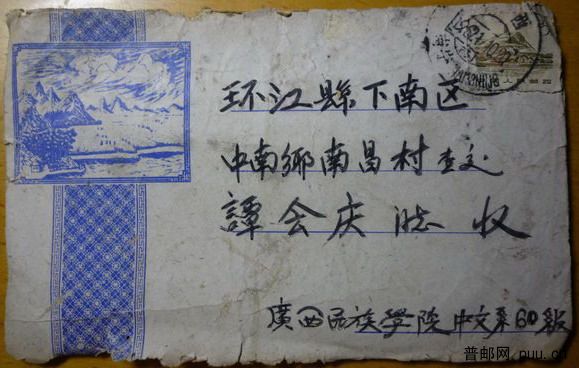 环江縣下南区
中南鄉南昌村查交
譚会庆 收
廣西民族學院中文系60級
普邮网 puu.cn